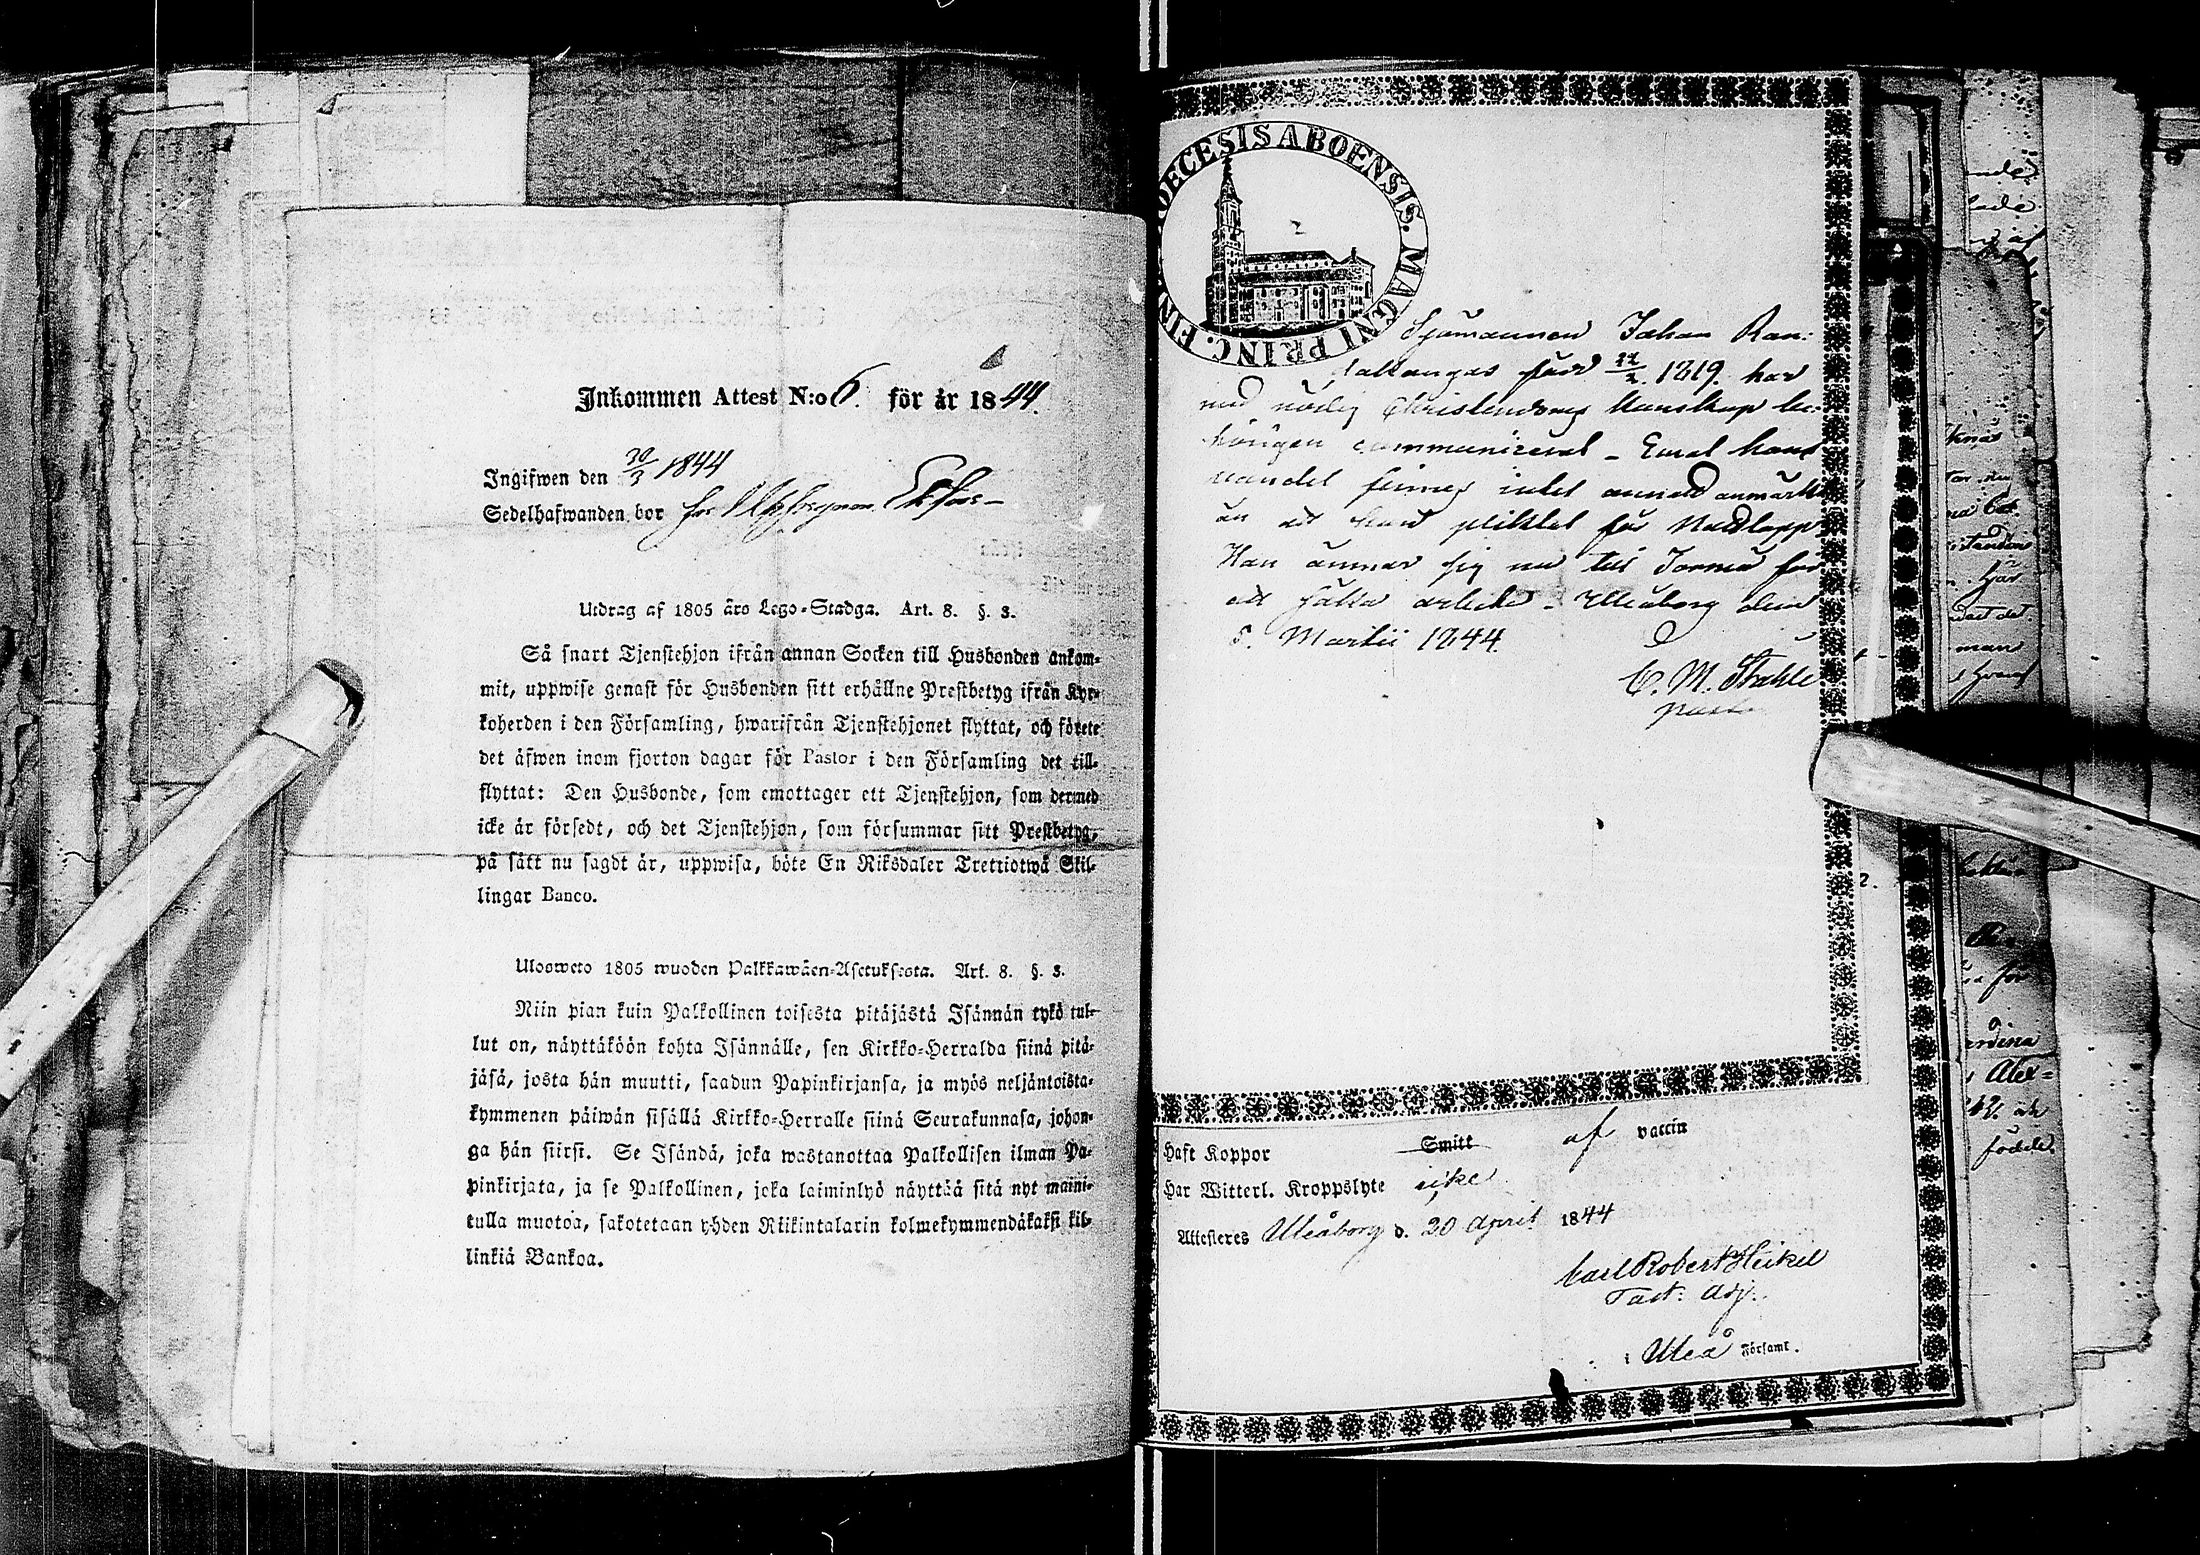 Inkommen Attest N:o 6. för år 1844.
Ingifwen den 30/3 1844
Sedelhafwanden bor
Utdrag af 1805 års Lego-Stadga. Art. 8. §. 3.
Så snart Tjenstehjon ifrån annan Socken till Husbonden ankom-
mit, uppwise genast för Husbonden sitt erhållne Prestbetyg ifrån Kyr-
koherden i den Församling, hwarifrån Tjenstehjonet flyttat, och förete
det äfwen inom fjorton dagar för Pastor i den Församling det till-
flyttat: Den Husbonde, som emottager ett Tjenstehjon, som dermed
icke är försedt, och det Tjenstehjon, som försummar sitt Prestbetyg,
på sätt nu sagdt är, uppwisa, böte En Riksdaler Trettiotwå Skil-
lingar Banco.
Ulosweto 1805 wuoden Palkkawäen-Asetuksesta. Art. 8. §. 3.
Niin pian kuin Palkollinen toisesta pitäjästä Isännän tykö tul-
lut on, näyttäköön kohta Isännälle, sen Kirkko-Herralda siinä pitä-
jäsä, josta hän muutti, saadun Papinkirjansa, ja myös neljäntoista-
kymmenen päiwän sisällä Kirkko-Herralle siinä Seurakunnasa, johon-
ga hän siirsi. Se Isändä, joka wastanottaa Palkollisen ilman Pa-
pinkirjata, ja se Palkollinen, joka laiminlyö näyttää sitä nyt maini-
tulla muotoa, sakotetaan yhden Riikintalarin kolmekymmendäkaksi kil-
linkiä Bankoa.
OECESIS ABOENSIS. MAGNI PRINC. FIN
Sjömannen Johan Ran-
född 1819. har
med nödig Christendoms kunskap be-
hörigen communicerat - Emot hans
vandel finnes intet annat anmärkt
än att han pliktat för
Han ämnar sig nu till Torneå för
att sätta arbete - Uleåborg den
5. Martii 1844
C. M. Stahle
Haft Koppor Smitt af vaccin
Har Witterl. Kroppslyte icke
Attesteres Uleåborg d. 20 April 1844
Carl Robert Heikel
Past: Adj:
i Uleå Församl.